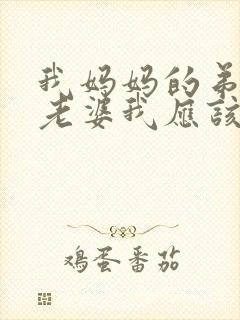 我妈妈的弟
老婆我应该
鸡蛋番茄